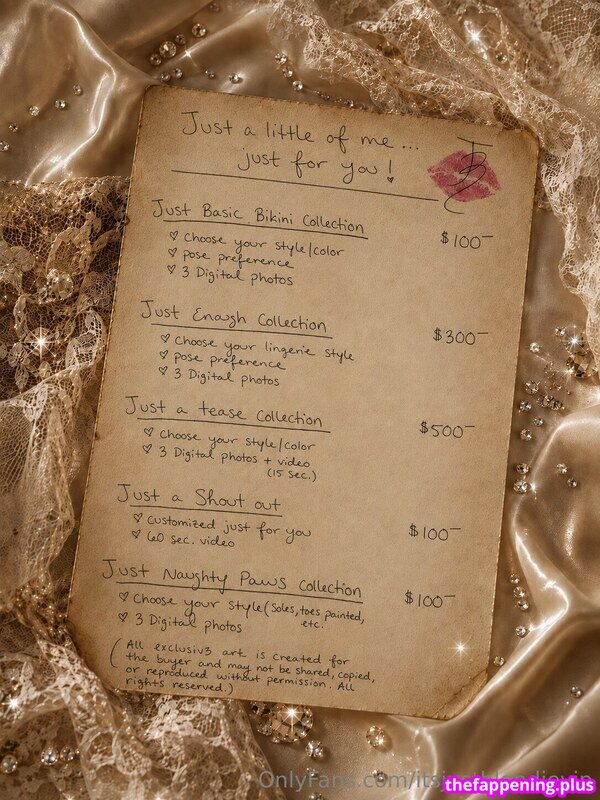 Just a little of me ...
just for you!
JB
Just Basic Bikini Collection
$100
Choose your style/color
pose preference
3 Digital photos
Just Enough Collection
$300
Choose your lingerie style
pose preference
3 Digital photos
Just a tease Collection
$500
Choose your style/color
3 Digital photos + video
(15 sec.)
Just a Shout out
$100
Customized just for you
60 sec. video
Just Naughty Paws Collection
$100
Choose your style (Soles, toes painted,
etc.
3 Digital photos
(All exclusiv3 art is created for
the buyer and may not be shared, copied,
or reproduced without permission. All
rights reserved.)
thefappening.plus